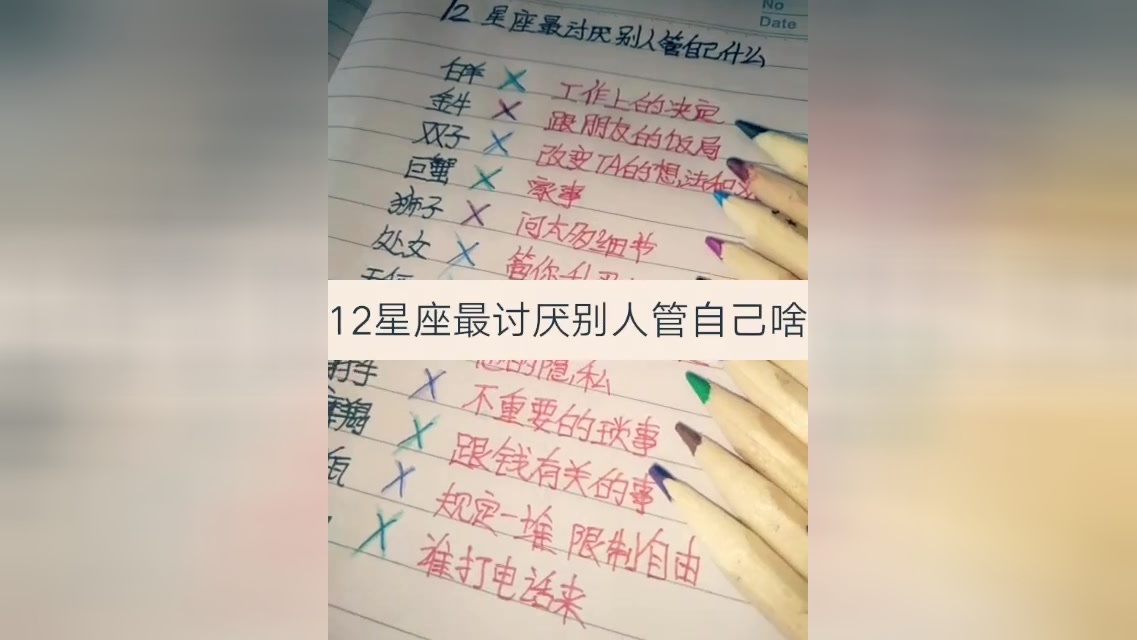 No
Date
12星座最讨厌别人管自己什么
白羊 X 工作上的决定
金牛 X 跟朋友的饭局
双子 X 改变TA的想法和
巨蟹 X 家事
狮子 X 问太多细节
处女 X 管你
12星座最讨厌别人管自己啥
的隐私
射手 X 不重要的琐事
摩羯 X 跟钱有关的事
瓶 X 规定一堆 限制自由
X 谁打电话来